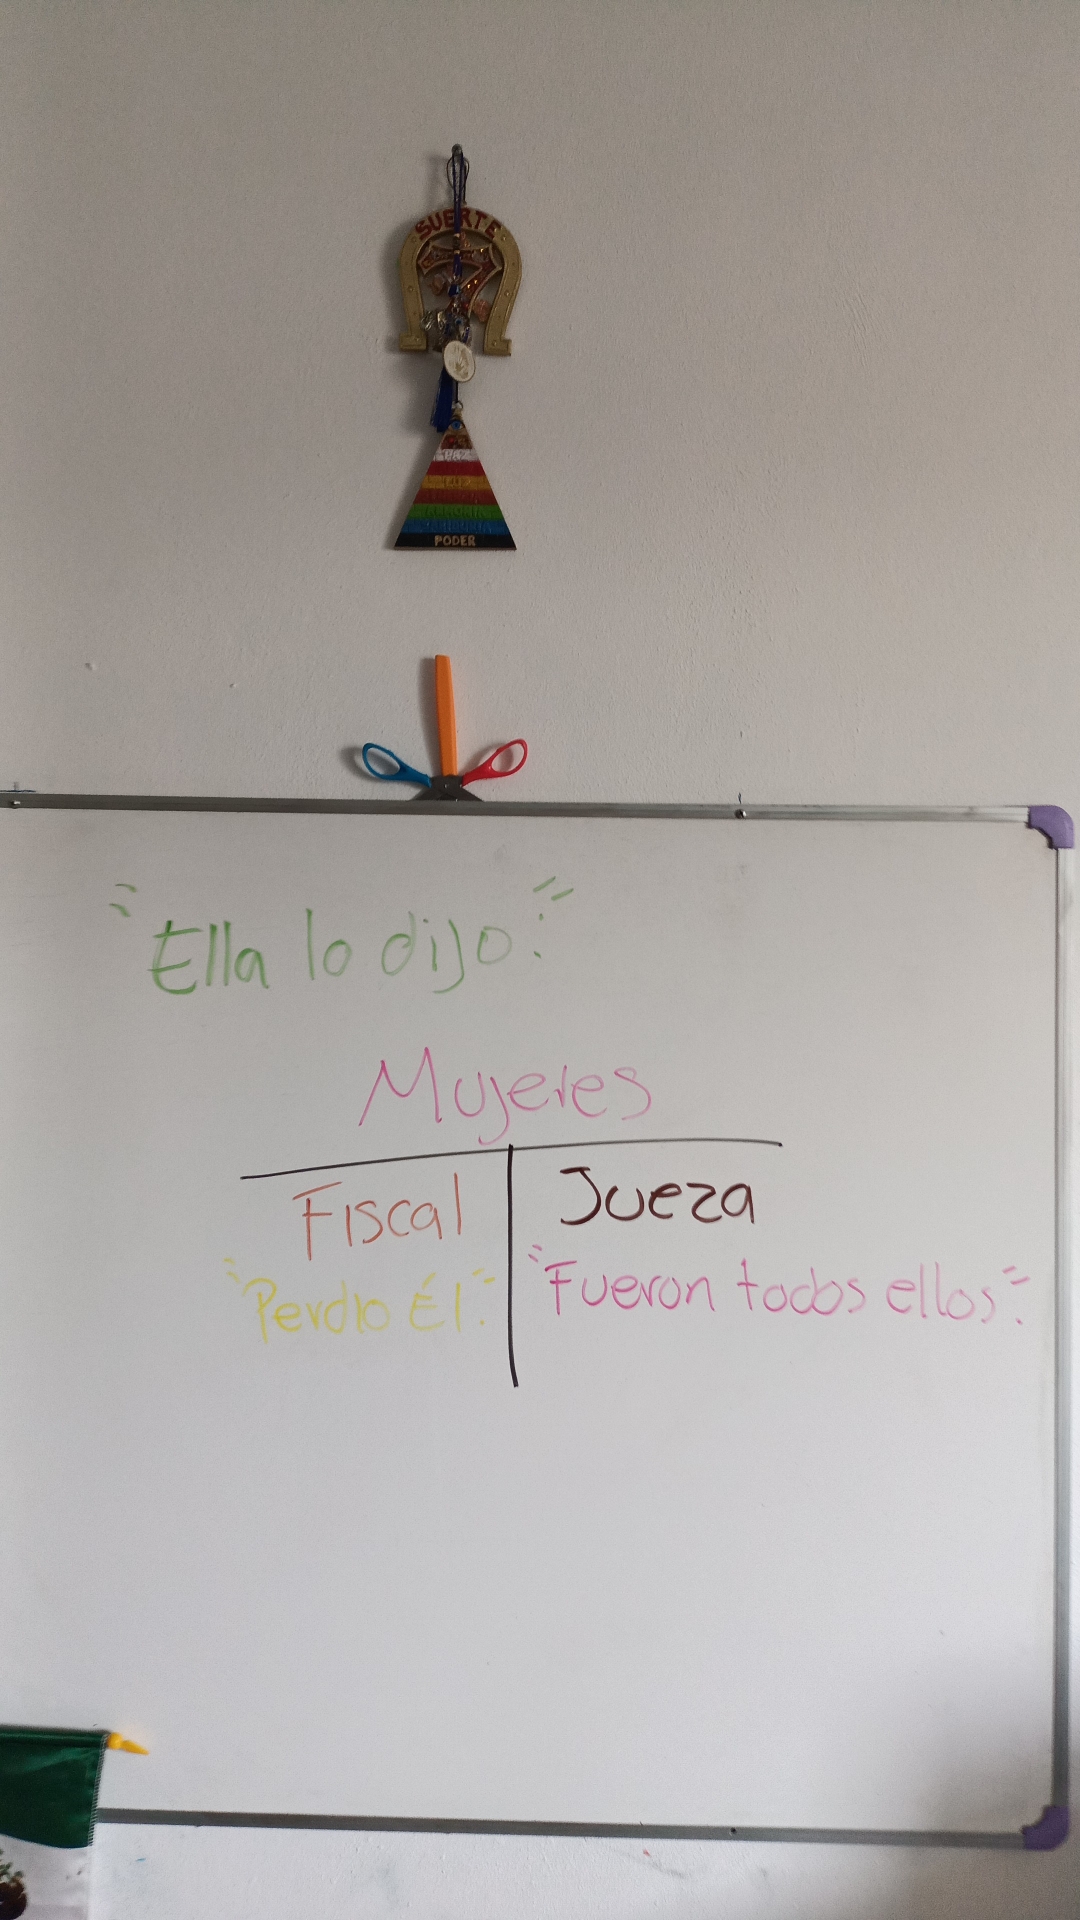 SUERTE
7
PAZ
LUZ
PODER
"Ella lo dijo:"
Mujeres
Fiscal
Jueza
"Perdio Él".
"Fueron todos ellos".